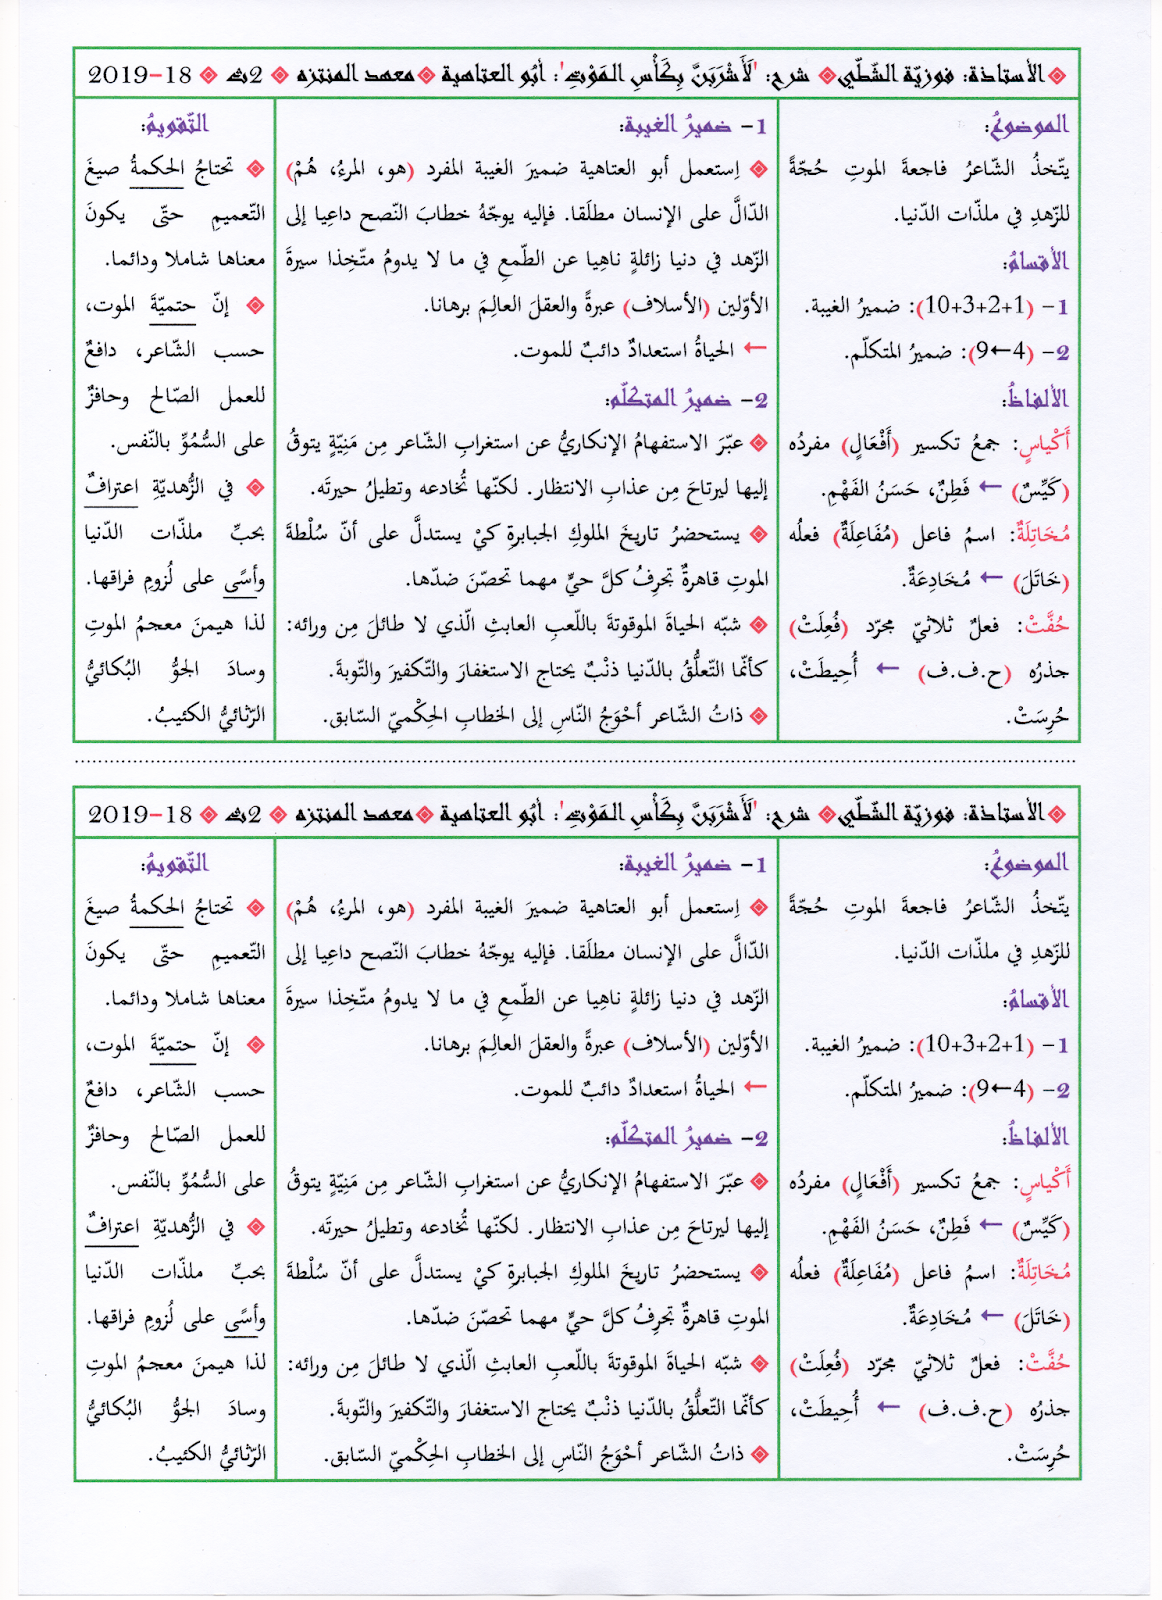 الأستاذة: فوزيّة الشّطّي شرح: 'لَأَشْرَبَنَّ بِكَأْسِ المَوْتِ': أبُو العتاهية معهد المنتزه 2ث 18-2019
الموضوعُ:
يتّخذُ الشّاعرُ فاجعةَ الموتِ حُجّةً
للزّهدِ في ملذّات الدّنيا.
الأقسامُ:
1- (1+2+3+10): ضميرُ الغيبة.
2- (4←9): ضميرُ المتكلّم.
الألفاظُ:
أَكْيَاسٍ: جمعُ تكسير (أَفْعَالٍ) مفردُه
(كَيِّسٌ) ← فَطِنٌ، حَسَنُ الفَهْمِ.
مُخَاتِلَةٌ: اسمُ فاعل (مُفَاعِلَةٌ) فعلُه
(خَاتَلَ) ← مُخَادِعَةٌ.
حُفَّتْ: فعلٌ ثلاثيّ مجرّد (فُعِلَتْ)
جذرُه (ح.ف.ف) ← أُحِيطَتْ،
حُرِسَتْ.
1- ضميرُ الغيبة:
اِستعمل أبو العتاهية ضميرَ الغيبة المفرد (هو، المرءُ، هُمْ)
الدّالَّ على الإنسان مطلَقا. فإليه يوجّهُ خطابَ النّصح داعِيا إلى
الزّهد في دنيا زائلةٍ ناهِيا عن الطّمعِ في ما لا يدومُ متّخِذا سيرةَ
الأوّلين (الأسلاف) عبرةً والعقلَ العالِمَ برهانا.
← الحياةُ استعدادٌ دائبٌ للموت.
2- ضميرُ المتكلّم:
عبّرَ الاستفهامُ الإنكاريُّ عن استغرابِ الشّاعر مِن مَنِيّةٍ يتوقُ
إليها ليرتاحَ مِن عذابِ الانتظار. لكنّها تُخادعه وتطيلُ حيرتَه.
يستحضرُ تاريخَ الملوكِ الجبابرةِ كيْ يستدلَّ على أنّ سُلْطةَ
الموتِ قاهرةٌ تجرِفُ كلَّ حيٍّ مهما تحصّنَ ضدّها.
شبّه الحياةَ الموقوتةَ باللّعبِ العابثِ الّذي لا طائلَ مِن ورائه:
كأنّما التّعلُّقُ بالدّنيا ذنْبٌ يحتاج الاستغفارَ والتّكفيرَ والتّوبةَ.
ذاتُ الشّاعر أحْوَجُ النّاسِ إلى الخطابِ الحِكْميّ السّابق.
التّقويمُ:
تحتاجُ الحكمةُ صيغَ
التّعميمِ حتّى يكونَ
معناها شاملا ودائما.
إنّ حتميّةَ الموت،
حسب الشّاعر، دافعٌ
للعمل الصّالح وحافزٌ
على السُّمُوِّ بالنّفس.
في الزُّهديّةِ اعترافٌ
بحبِّ ملذّات الدّنيا
وأسًى على لُزومِ فراقها.
لذا هيمنَ معجمُ الموتِ
وسادَ الجوُّ البُكائيُّ
الرّثائيُّ الكئيبُ.
الأستاذة: فوزيّة الشّطّي شرح: 'لَأَشْرَبَنَّ بِكَأْسِ المَوْتِ': أبُو العتاهية معهد المنتزه 2ث 18-2019
الموضوعُ:
يتّخذُ الشّاعرُ فاجعةَ الموتِ حُجّةً
للزّهدِ في ملذّات الدّنيا.
الأقسامُ:
1- (1+2+3+10): ضميرُ الغيبة.
2- (4←9): ضميرُ المتكلّم.
الألفاظُ:
أَكْيَاسٍ: جمعُ تكسير (أَفْعَالٍ) مفردُه
(كَيِّسٌ) ← فَطِنٌ، حَسَنُ الفَهْمِ.
مُخَاتِلَةٌ: اسمُ فاعل (مُفَاعِلَةٌ) فعلُه
(خَاتَلَ) ← مُخَادِعَةٌ.
حُفَّتْ: فعلٌ ثلاثيّ مجرّد (فُعِلَتْ)
جذرُه (ح.ف.ف) ← أُحِيطَتْ،
حُرِسَتْ.
1- ضميرُ الغيبة:
اِستعمل أبو العتاهية ضميرَ الغيبة المفرد (هو، المرءُ، هُمْ)
الدّالَّ على الإنسان مطلَقا. فإليه يوجّهُ خطابَ النّصح داعِيا إلى
الزّهد في دنيا زائلةٍ ناهِيا عن الطّمعِ في ما لا يدومُ متّخِذا سيرةَ
الأوّلين (الأسلاف) عبرةً والعقلَ العالِمَ برهانا.
← الحياةُ استعدادٌ دائبٌ للموت.
2- ضميرُ المتكلّم:
عبّرَ الاستفهامُ الإنكاريُّ عن استغرابِ الشّاعر مِن مَنِيّةٍ يتوقُ
إليها ليرتاحَ مِن عذابِ الانتظار. لكنّها تُخادعه وتطيلُ حيرتَه.
يستحضرُ تاريخَ الملوكِ الجبابرةِ كيْ يستدلَّ على أنّ سُلْطةَ
الموتِ قاهرةٌ تجرِفُ كلَّ حيٍّ مهما تحصّنَ ضدّها.
شبّه الحياةَ الموقوتةَ باللّعبِ العابثِ الّذي لا طائلَ مِن ورائه:
كأنّما التّعلُّقُ بالدّنيا ذنْبٌ يحتاج الاستغفارَ والتّكفيرَ والتّوبةَ.
ذاتُ الشّاعر أحْوَجُ النّاسِ إلى الخطابِ الحِكْميّ السّابق.
التّقويمُ:
تحتاجُ الحكمةُ صيغَ
التّعميمِ حتّى يكونَ
معناها شاملا ودائما.
إنّ حتميّةَ الموت،
حسب الشّاعر، دافعٌ
للعمل الصّالح وحافزٌ
على السُّمُوِّ بالنّفس.
في الزُّهديّةِ اعترافٌ
بحبِّ ملذّات الدّنيا
وأسًى على لُزومِ فراقها.
لذا هيمنَ معجمُ الموتِ
وسادَ الجوُّ البُكائيُّ
الرّثائيُّ الكئيبُ.